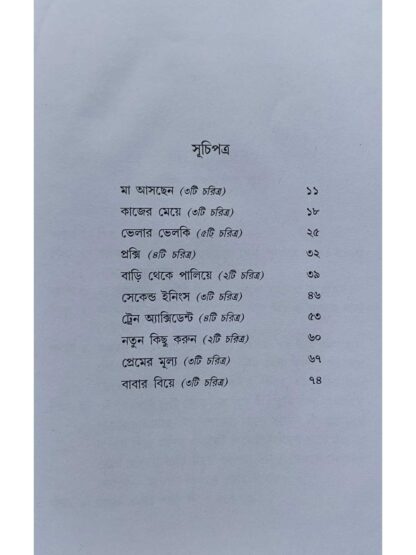 সূচিপত্র
মা আসছেন (৩টি চরিত্র) ১১
কাজের মেয়ে (৩টি চরিত্র) ১৮
ভেলার ভেলকি (৫টি চরিত্র) ২৫
প্রক্সি (৪টি চরিত্র) ৩২
বাড়ি থেকে পালিয়ে (২টি চরিত্র) ৩৯
সেকেন্ড ইনিংস (৩টি চরিত্র) ৪৬
ট্রেন অ্যাক্সিডেন্ট (৪টি চরিত্র) ৫৩
নতুন কিছু করুন (২টি চরিত্র) ৬০
প্রেমের মূল্য (৩টি চরিত্র) ৬৭
বাবার বিয়ে (৩টি চরিত্র) ৭৪